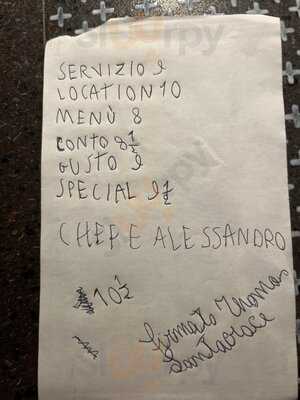 SERVIZIO 9
LOCATION 10
MENÙ 8
CONTO 8½
GUSTO 9
SPECIAL 9½
CHEF E ALESSANDRO
10½
firmato Thomas
Santacroce